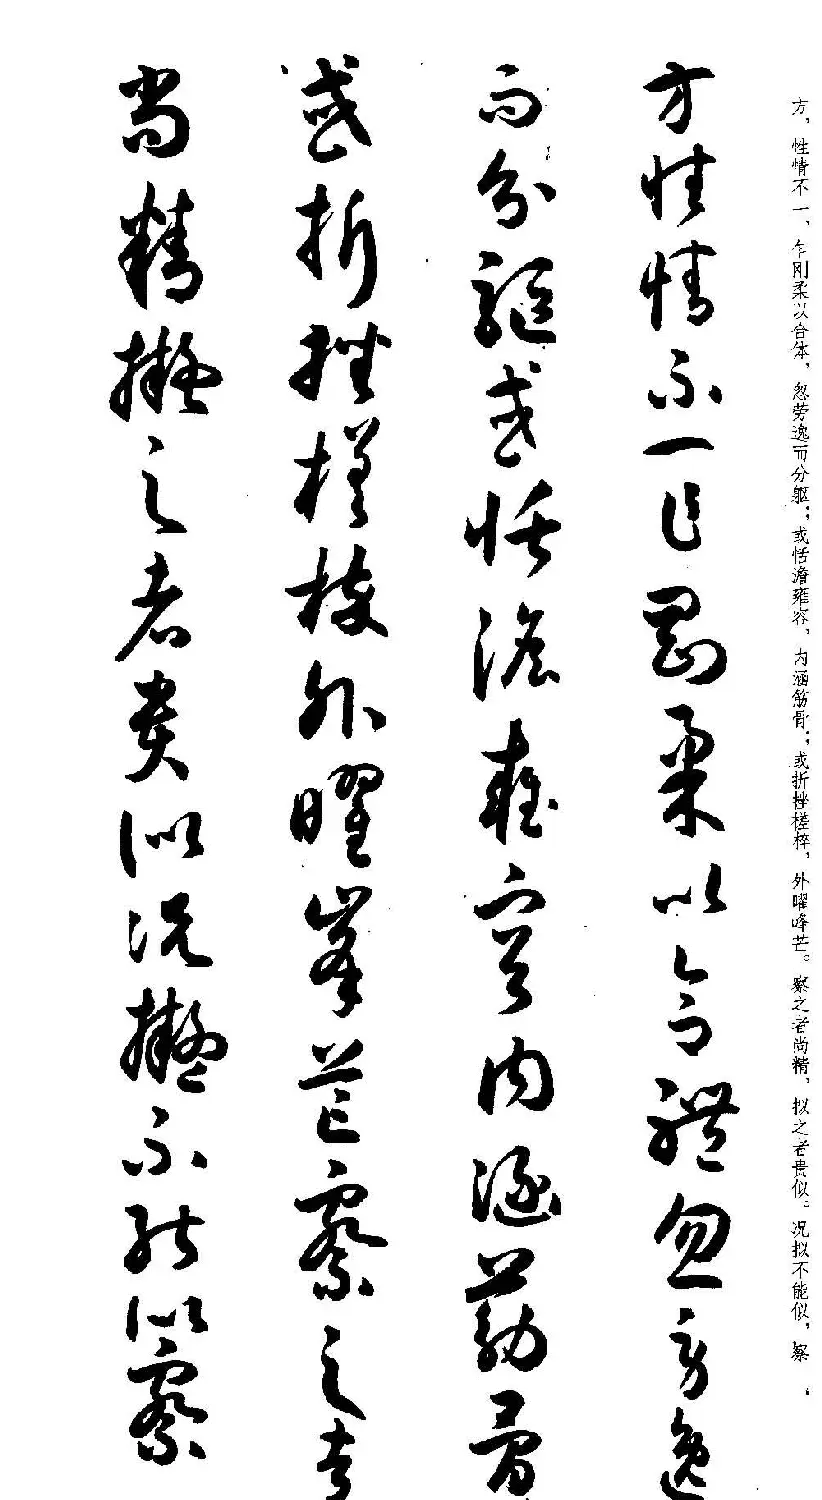 方，性情不一，乍刚柔以合体，忽劳逸而分躯；或恬澹雍容，内涵筋骨；或折挫槎枿，外曜峰芒。察之者尚精，拟之者贵似。况拟不能似，察
方性情不一乍剛柔以合體忽勞逸
而分軀或恬澹雍容內涵筋骨
或折挫槎枿外曜峯芒察之者
尚精擬之者貴似況擬不能似察